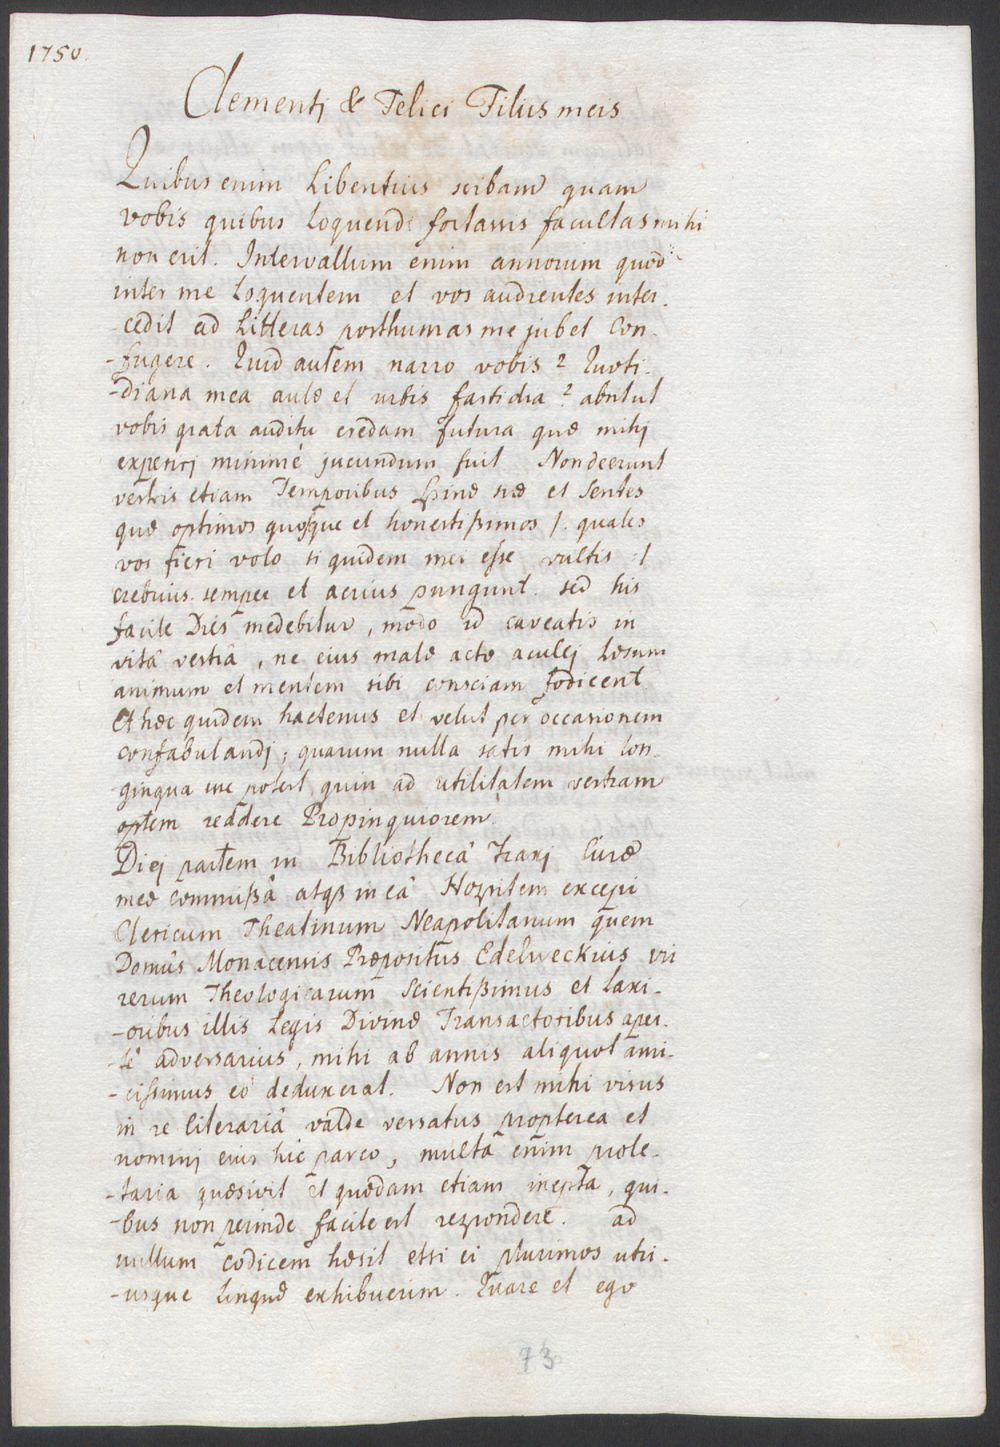 1750.
Clementj & Felici Filiis meis
Quibus enim Libentius scibam quam
vobis quibus Loquendi fortassis facultas mihi
non erit. Intervallum enim annorum quod
inter me Loquentem et vos audientes inter-
-cedit ad Litteras posthumas me jubet Con-
-fugere. Quid autem narro vobis? Quoti-
-diana mea aulæ et urbis fastidia? absit ut
vobis grata auditu credam futura quæ mihj
experirj minimè jucundum fuit Non deerunt
vestris etiam Temporibus Spinæ suæ et Sentes
quæ optimos quosque et honestißimos /. quales
vos fieri volo siquidem mei esse vultis :/
crebrius semper et acrius pungunt. sed his
facile Dies medebitur, modo id caveatis in
vitâ vestrâ, ne eius male actæ aculej Læsum
animum et mentem sibi consciam fodicent
Et hæc quidem hactenus et velut per occasionem
confabulandj; quarum nulla satis mihi Lon-
ginqua esse potest quin ad utilitatem vestram
optem reddere Propinquiorem.
Diej partem in Bibliothecâ Traxj Curæ
meæ Commißâ atque in eâ Hospitem excepi
Clericum Theatinum Neapolitanum quem
Domûs Monacensis Præpositus Edelweckius vir
rerum Theologicarum Scientißimus et Laxi-
-oribus illis Legis Divinæ Transactoribus aper-
-tè adversarius, mihi ab annis aliquot ami-
-cissimus eò deduxerat. Non est mihi visus
in re Literariâ valde versatus propterea et
nominj eius hic parco, multa enim prole-
-taria quæsivit et quædam etiam inepta, qui-
-bus non perinde facile est respondere. ad
nullum codicem hæsit etsi ei plurimos utri-
-usque Linguæ exhibuerim. Quare et ego
73